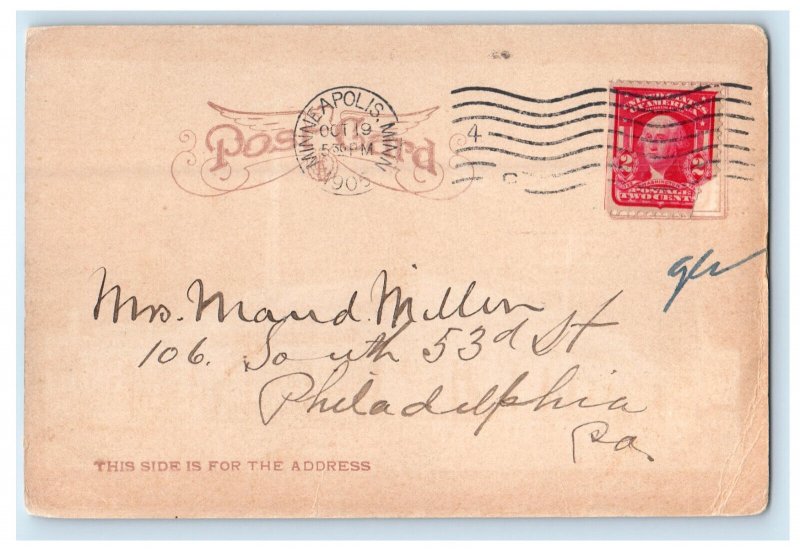 Post Card
MINNEAPOLIS. MINN.
OCT 19
5 30 PM
1905
4
UNITED STATES
OF AMERICA
2 2
POSTAGE
TWO CENT
Mrs. Maud. Miller
106. South 53d St
Philadelphia
Pa.
THIS SIDE IS FOR THE ADDRESS